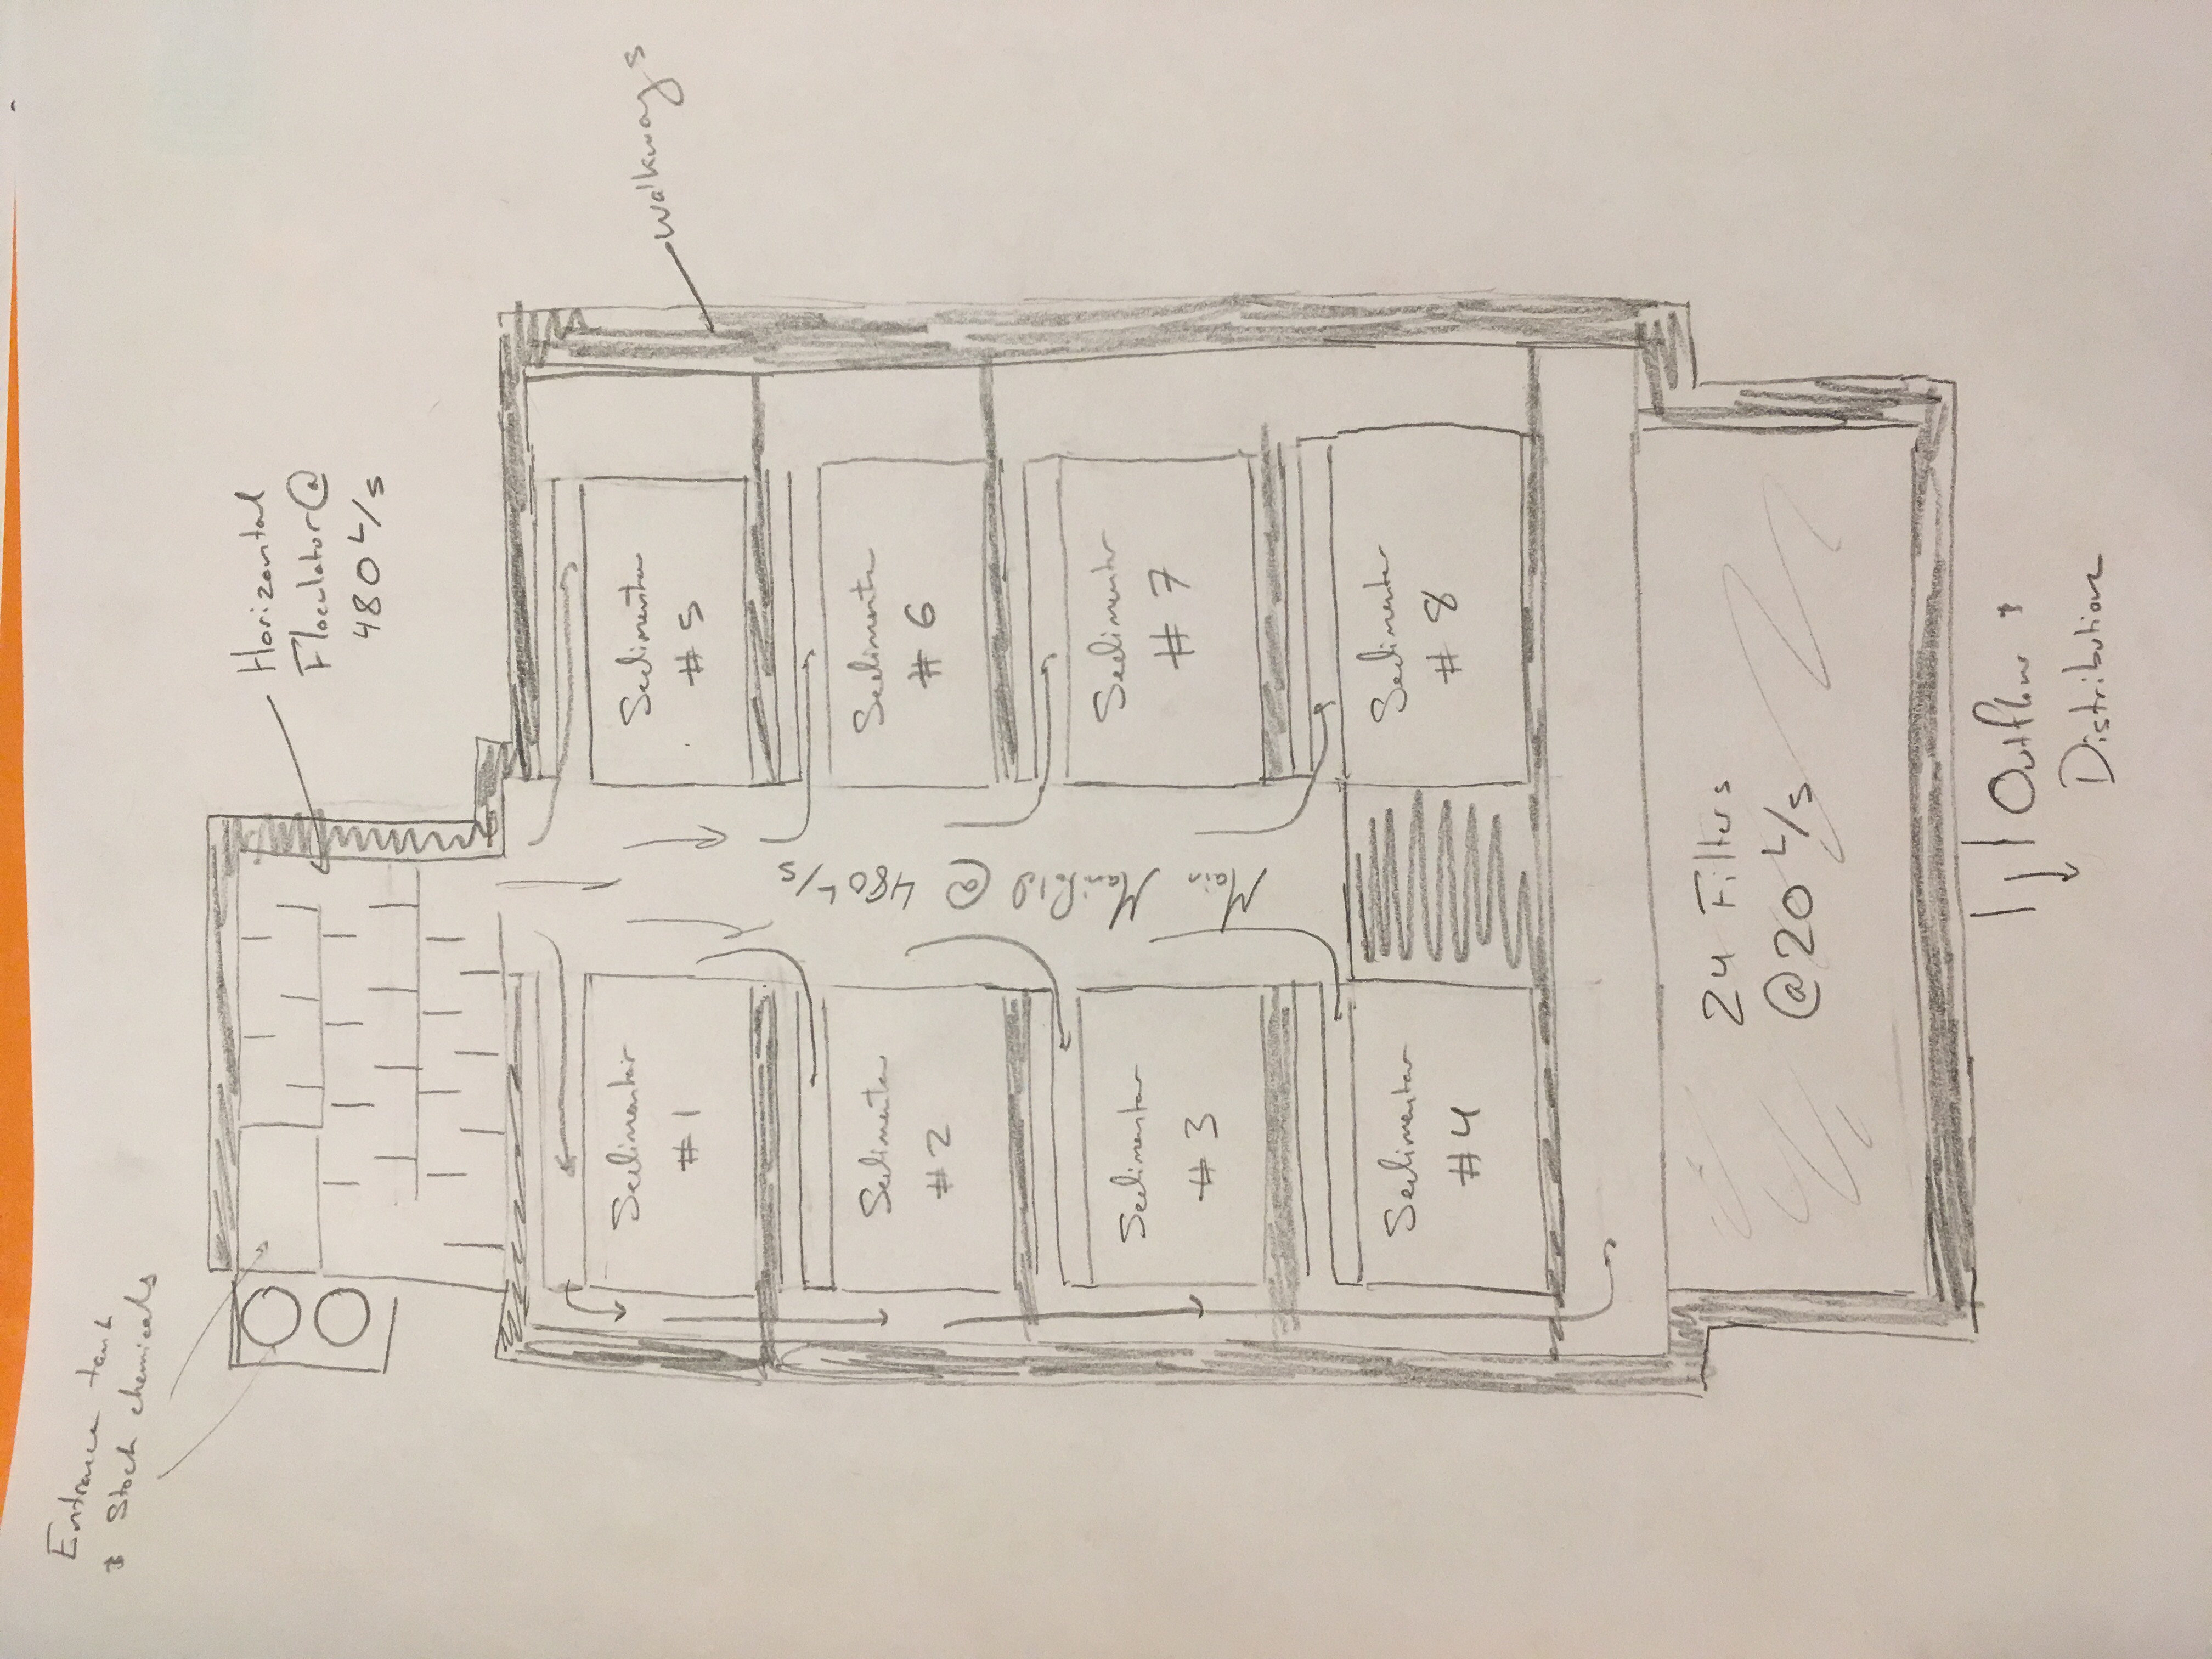 Entrance tank
& Stock chemicals
Horizontal
Floculator @
480 L/s
Walkways
Sedimentor
#1
Sedimentor
#5
Sedimentor
#2
Sedimentor
#6
Main Manifold @ 480 L/s
Sedimentor
#3
Sedimentor
#7
Sedimentor
#4
Sedimentor
#8
24 Filters
@ 20 L/s
Outflow &
Distribution